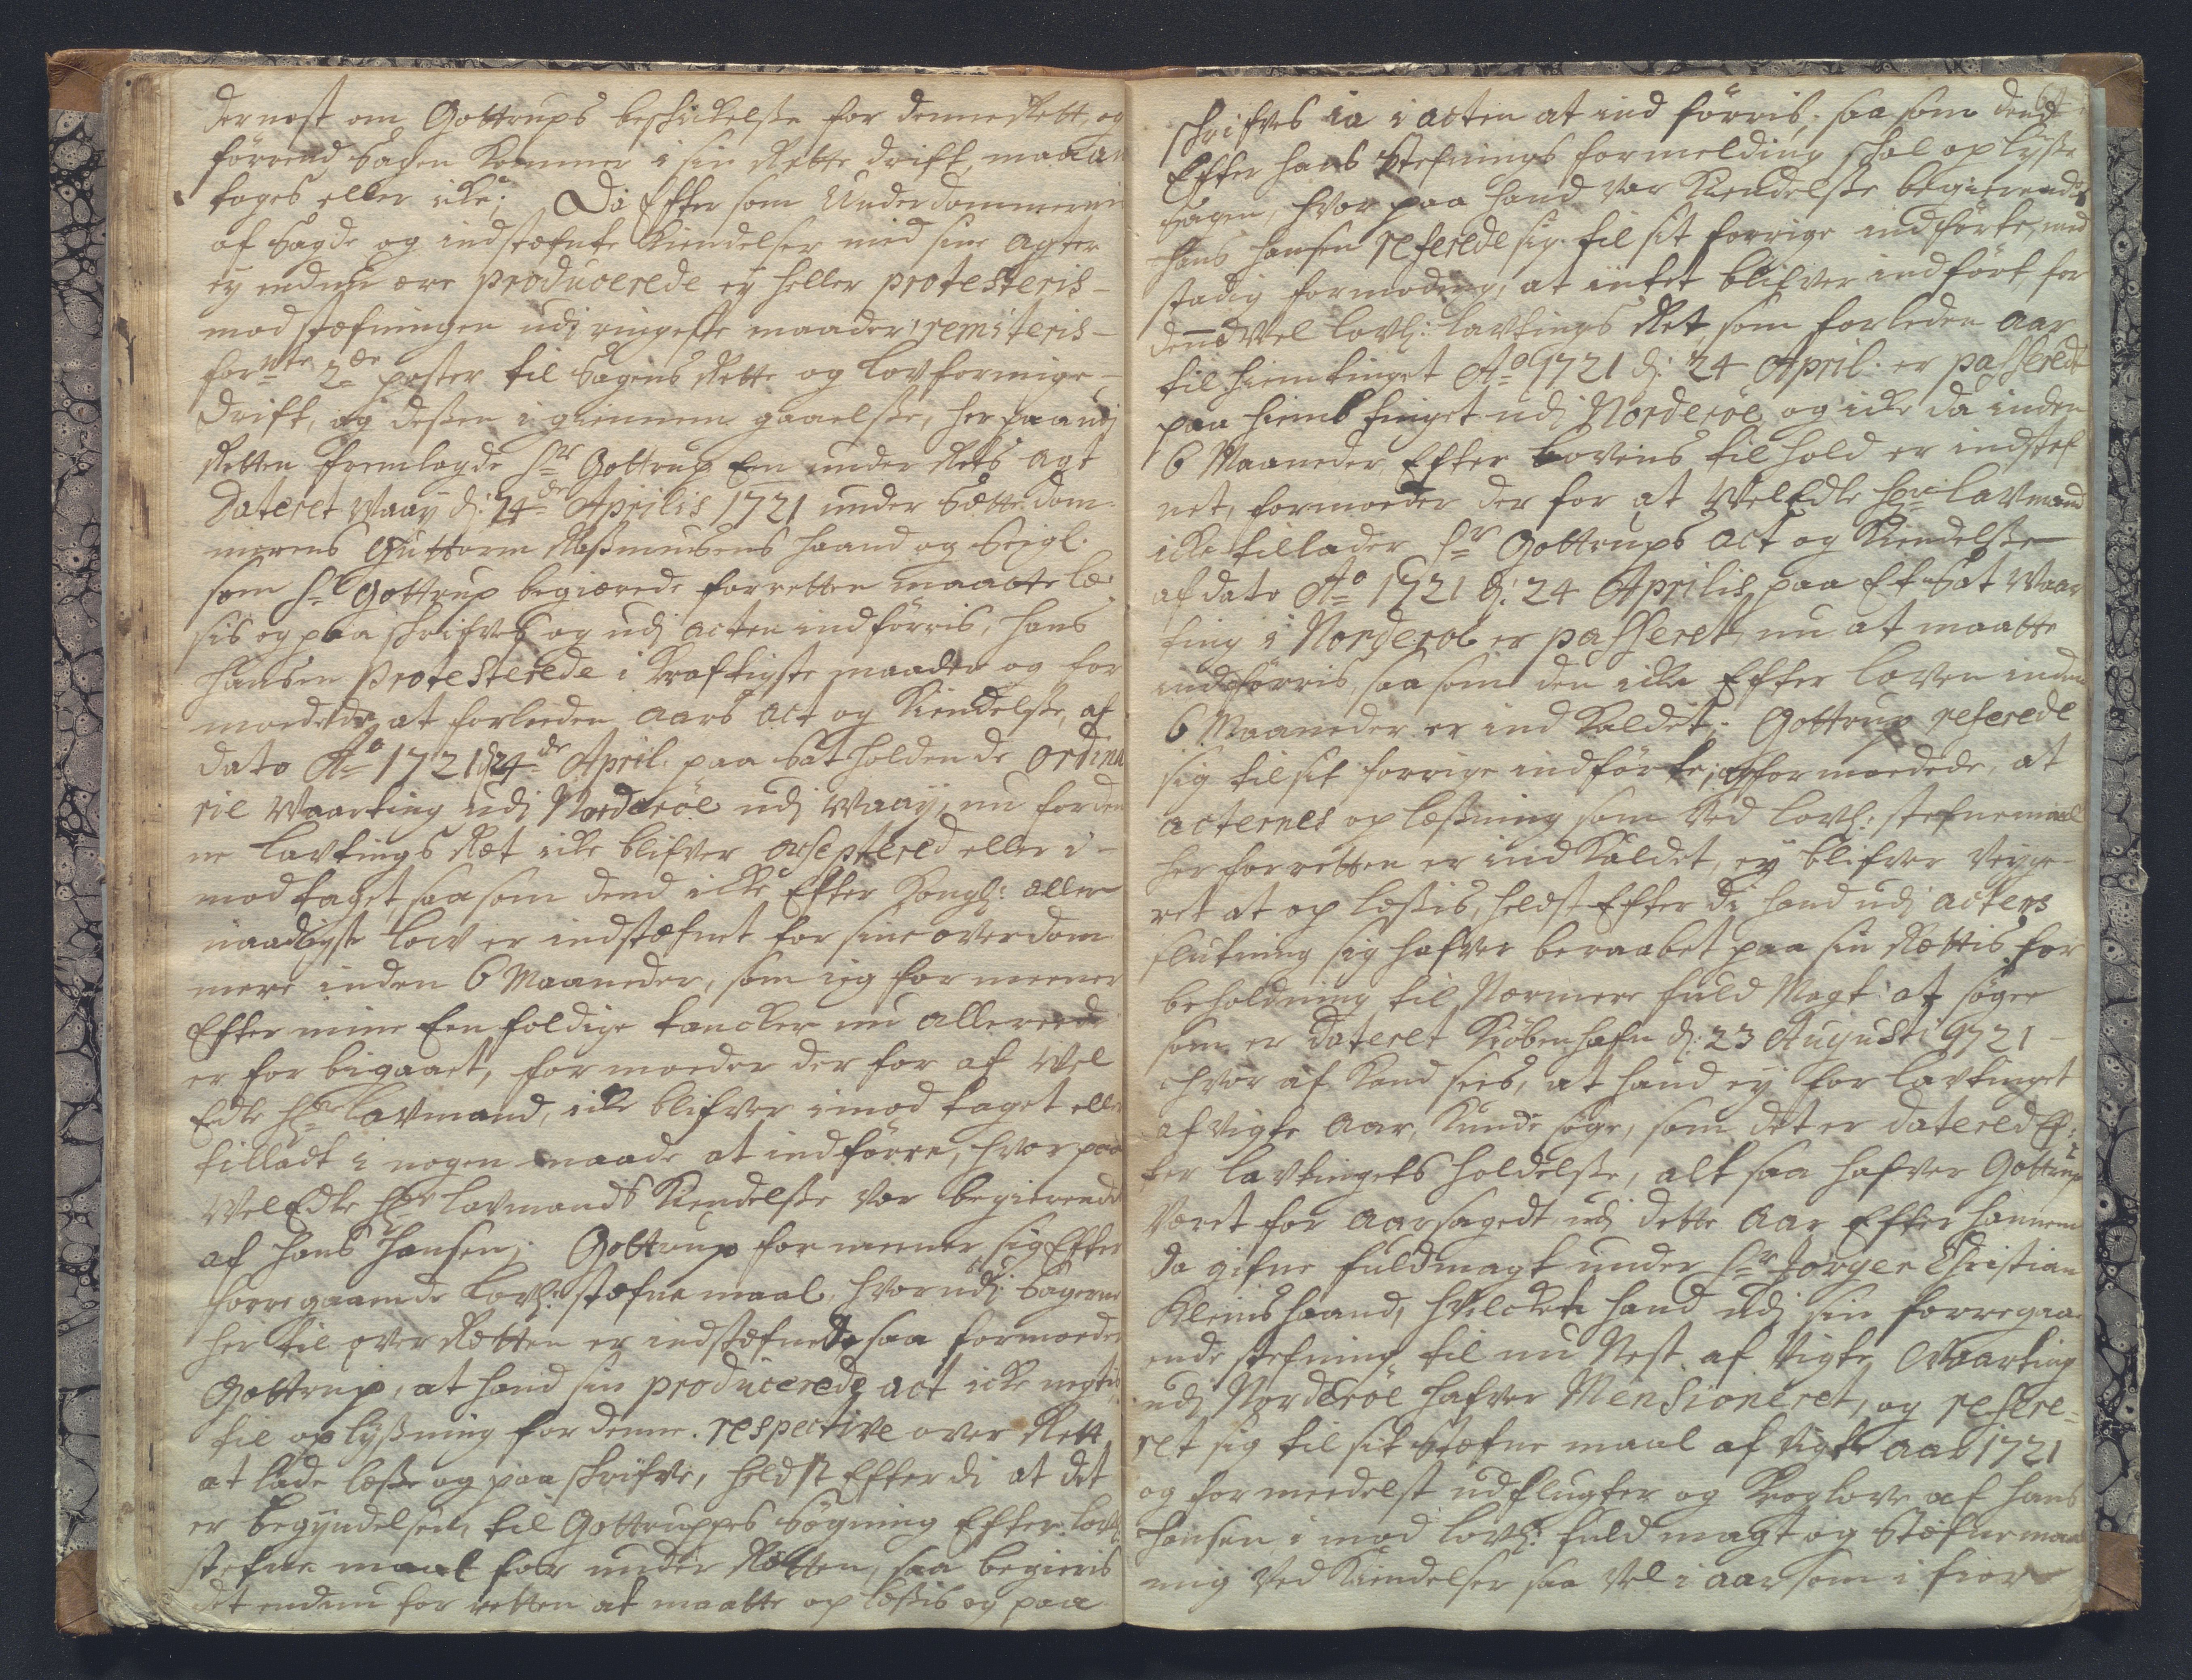 dernest om Gottrups beskickelsse for denne Rett, og
førrend Sagen kommer i sin Rette drift, maa an
tages eller icke; Da Efter som Underdommeren
af Sagde og indstæfnte Kiendelser med sine Agter
ey endnu ere producerede ey heller protesteris
mod stæfningen udi ringeste maader, remiteris
forn̄te 2de poster til Sagens Rette og lovformige
drift, og dessen igiennem gaaelsse, her paa udj
Retten fremlagde Sr Gottrup Een under Rets Act
Dateret Waaÿ d: 24de Aprilis 1721 under Sættedom
merens Guttorm Rassmusens haand og Seigl.
som Sr Gottrup begiærede for retten maatte læ
sis og paa skrifves og udj acten indførris, Hans
Hansen Protesterede i kraftigste maader og for
moedede, at forleeden Aars Act og Kiendelsse, af
dato Ao 1721 d 24de April. paa Sat holdende Ordina
ril Waarting udj Norderøe udj Waaÿ, nu for den
ne Lavtings Ræt icke blifver acceptered eller i
mod taget, saa som dend icke Efter Kongl: aller
naadigste Lov er indstæfnet for sine overdom
mere inden 6 Maaneder, som ieg for meener
Efter mine Eenfoldige tancker nu allereede
er for bigaaet, formoeder der for af Wel
Edle Hr Lavmand, icke blifver imod taget eller
tilladt i nogen maade at indførre, hvor paa
WelEdle Hr Lavmands Kiendelsse var begierende
af Hans Hansen; Gottrup formeener sig Efter
forregaaende Lovl: stæfnemaal, hvorudj Sagerne
her til over Rætten er indstæfnede saa formoeder
Gottrup, at hand sin producerede act icke negtis
til oplyssning for denne respective over Rett,
at lade læsse og paaskrifve, heldst Efterdi at det
er begyndelsen til Gottruppes Søgning Efter Lovl:
stefne maal for under Rætten, saa begieris
det endnu for retten at maatte op læssis og paa
skrifves ia i acten at ind førris, saa som dend
Efter hans Stefnings formelding skal oplysse
Sagen, hvor paa hand var Kiendelsse begierendes
Hans Hansen refereede sig til sit forrige indførte, med
stadig formoding, at intet blifver indført for
den̄d Vel Lovl: Lavtings Ret, som forleden Aar
til hiemtinget Ao 1721 d: 24 April. er passeredt
paa hiemb tinget udj Norderøe, og icke da inden
6 Maaneder, Efter Lovens tilhold er indstef
net, formoeder der for at WelEdle Hr Lavmand
icke tillader Sr Gottrups Act og Kiendelsse
af dato Ao 1721 d: 24 Aprilis, paa Et Sat Waar
ting i Norderøe er passeret, nu at maatte
indførris, saa som den icke Efter Loven inden
6 Maaneder er ind Kaldet; Gottrup referede
sig til sit forrige indførte, og formoedede, at
acternes op læssning som Ved Lovl: stefnemaal
her for retten er ind Kaldet, ey blifver veyge
ret at op læssis, heldst Efter di hand udj actens
slutning sig hafver beraabet paa sin Rættis for
beholdning til Nærmere fuld Magt at søgee
som er Dateret Kiøbenhafn d: 23 Augusti 1721
hvor af Kand sees, at hand ey for Lavtinget
afvigte Aar, Kunde søge, som det er Datered Ef:
ter Lavtingets holdelsse, alt saa hafver Gottrup
Været for aarsagedt udj dette Aar Efter hannem
da gifne fuldmagt under Sr Jørgen Christian
Kleins haand, hvilcken hand udj sin forregaa
ende stefning til nu Nest af vigte Waarting
udj Norderøe hafver Mensioneret, og refere=
ret sig til sit Stæfne maal af vigte Aar 1721
og formeedelst udflugter og Kroglove af Hans
Hansen i mod Lovl: fuld magt og Stæfnemaal
mig Ved Kiendelser saa vel i aar som i fior